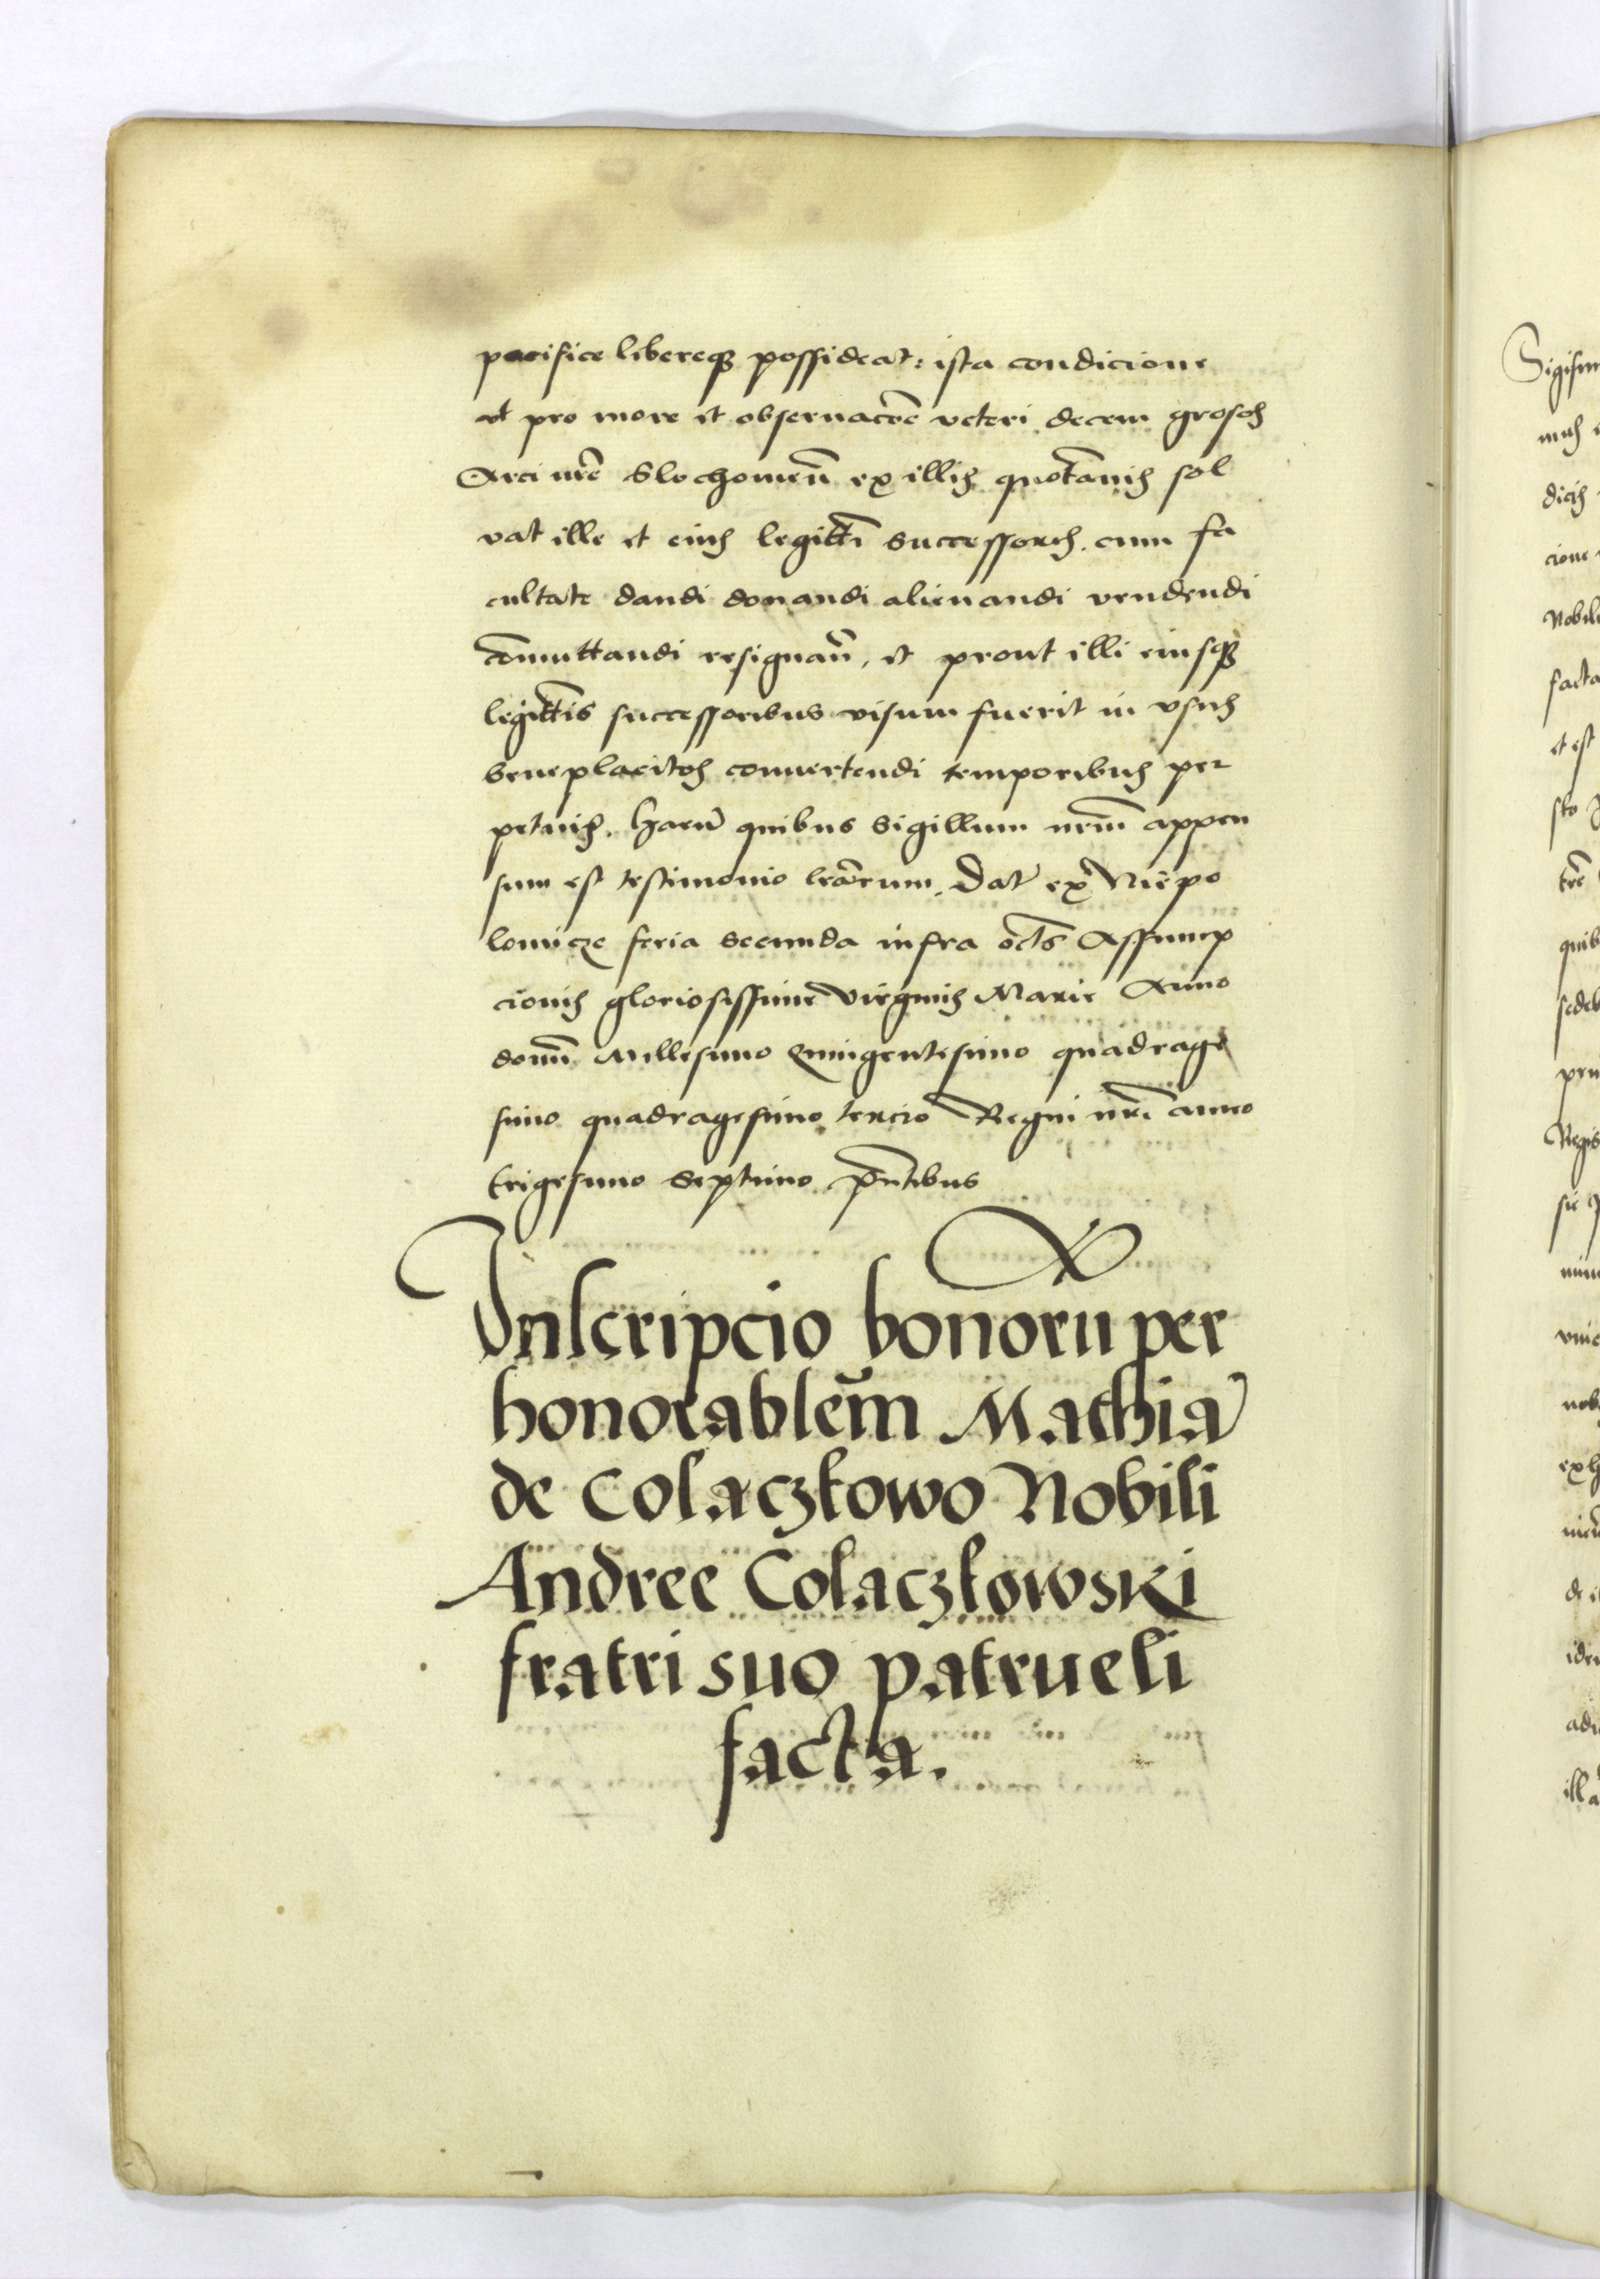 pacifice libereq3 possideat: ista condicione
ut pro more et obseruacōe veteri decem grosos
Arci nrē Slochouieñ ex illis quotannis sol
vat ille et eius legittī successores. cum fa
cultate dandi donandi alienandi vendendi
cōmuttandi resignañ, et prout illi eiusq3
legittīs successoribus visum fuerit in vsus
beneplacitos conuertendi temporibus per
petuis. harū quibus Sigillum nrūm appen
sum est testimonio lrārum. Dat ex Niepo
lomicze feria secunda infra octs̄ Assump
cionis gloriosissime virginis Marie Anno
domī Millesimo Quingentesimo quadrage
simo quadragesimo tercio Regni nrī anno
trigesimo Septimo pn̄tibus
Inscripcio bonorū per
honorablēm Mathiā
de Colaczkowo Nobili
Andree Colaczkowski
fratri suo patrueli
facta.
Sigism
dicis
cione
Nobili
facta
et est
sto
trē
quib
sedeb
Regis